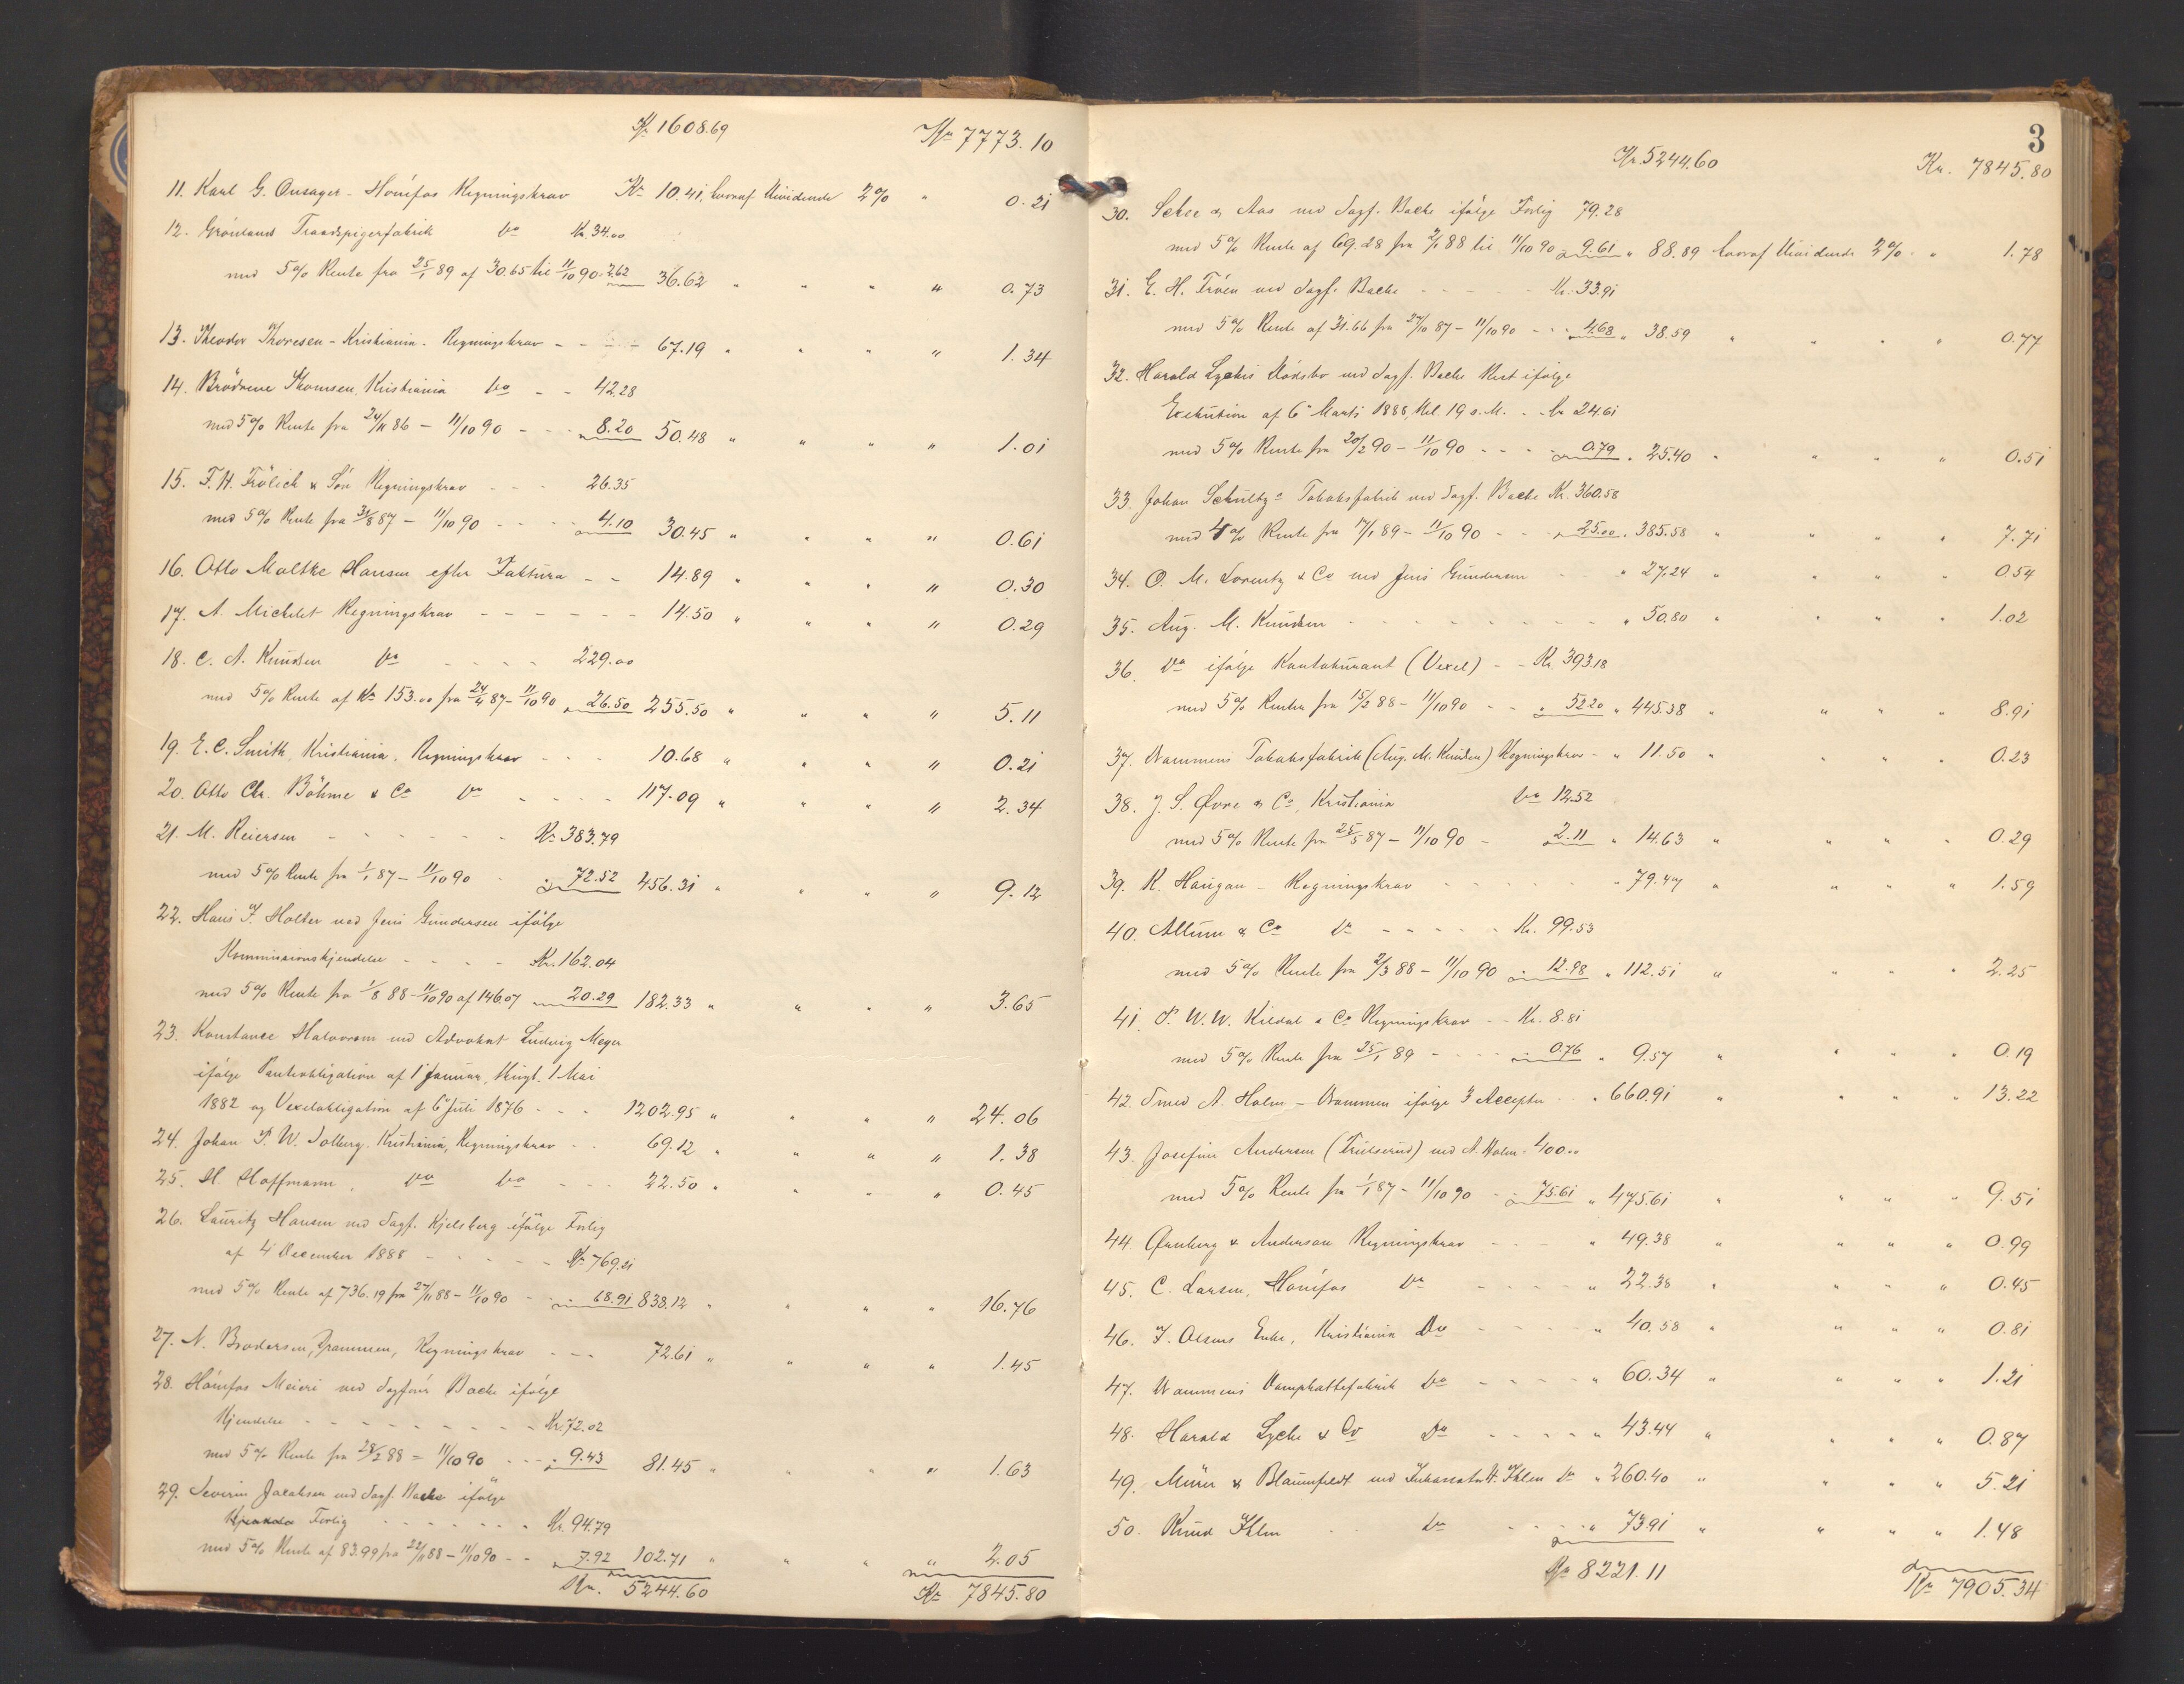 Kr. 1608.69 Kr 7773.10
11. Karl G. Onsager - Hønefos Regningskrav Kr 10.41, hvoraf Dividende 2% " 0.21
12. Grönlands Traadspigerfabrik Do Kr. 34.00
med 5% Rente fra 25/1 89 af 30.65 til 11/10 90 . 2.62 36.62 " " " " 0.73
13. Theodor Thoresen - Kristiania - Regningskrav - - - - 67.19 " " " " 1.34
14. Brödrene Thomsen, Kristiania Do - - 42.28
med 5% Rente fra 24/11 86 - 11/10 90 - - - 8.20 50.48 " " " " 1.01
15. F. H. Frölich & Sön Regningskrav - - - 26.35
med 5% Rente fra 31/8 87 - 11/10 90 - - - 4.10 30.45 " " " " 0.61
16. Otto Moltke Hansen efter Faktura - - 14.89 " " " " 0.30
17. A. Michelet Regningskrav - - - - - - 14.50 " " " " 0.29
18. C. A. Knudsen Do - - - - 229.00
med 5% Rente af Kr 153.00 fra 24/4 87 - 11/10 90 " 26.50 255.50 " " " " 5.11
19. E. C. Smith, Kristiania, Regningskrav - - - 10.68 " " " " 0.21
20. Otto Chr. Böhme & Co Do - - - - 117.09 " " " " 2.34
21. M. Reiersen - - - - - - Kr 383.79
med 5% Rente fra 1/1 87 - 11/10 90 - " 72.52 456.31 " " " " 9.12
22. Hans F. Holter ved Jens Gundersen ifölge
Kommissionskjendelse - - - - Kr. 162.04
med 5% Rente fra 1/8 88 - 11/10 90 af 146.07 " 20.29 182.33 " " " " 3.65
23. Konstance Halvorsen ved Advokat Ludvig Meyer
ifölge Panteobligation af 1 Januar, thingl. 1 Mai
1882 og Vexelobligation af 6 Juli 1876 - - - 1202.95 " " " " 24.06
24. Johan P. W. Solberg, Kristiania, Regningskrav - - 69.12 " " " " 1.38
25. H. Hoffmann, Do Do - - - 22.50 " " " " 0.45
26. Lauritz Hansen ved Sagf. Kjelsberg ifölge Forlig
af 4 December 1888 - - - - - Kr. 769.21
med 5% Rente af 736.19 fra 27/11 88 - 11/10 90 - - 68.91 838.12 " " " " 16.76
27. N. Brodersen, Drammen, Regningskrav - - - 72.61 " " " " 1.45
28. Hönefos Meieri ved Sagförer Bache ifölge
Kjendelse - - - - - - - - - Kr. 72.02
med 5% Rente fra 28/2 88 - 11/10 90 - - - " 9.43 81.45 " " " " 1.63
29. Severin Jacobsen ved Sagf. Bache ifölge
Kjendelse Forlig - - - - - - - Kr. 94.79
med 5% Rente af 83.99 fra 22/11 88 - 11/10 90 - - " 7.92 102.71 " " " " 2.05
Kr. 5244.60 Kr 7845.80
3
Kr. 5244.60 Kr. 7845.80
30. Schee & Aas ved Sagf. Bache ifölge Forlig 79.28
med 5% Rente af 69.28 fra 2/1 88 til 11/10 90 " 9.61 " 88.89 hvoraf Dividende 2% " " 1.78
31. E. H. Tröen ved Sagf. Bache - - - - - Kr. 33.91
med 5% Rente af 31.66 fra 27/10 87 - 11/10 90 - - - 4.68 " 38.59 " " " " 0.77
32. Harald Lyches Dödsbo ved Sagf. Bache Rest ifölge
Exekution af 6 Marts 1888, Kl. 19 s. M. - - Kr 24.61
med 5% Rente fra 20/2 90 - 11/10 90 - - - - 0.79 " 25.40 " " " " 0.51
33. Johan Schultz's Tobaksfabrik ved Sagf. Bache Kr. 360.58
med 4% Rente fra 7/1 89 - 11/10 90 - - - " 25.00 " 385.58 " " " " 7.71
34. O. M. Lorentz & Co ved Jens Gundersen - - " 27.24 " " " " 0.54
35. Aug. M. Knudsen - - - - - - - - - " 50.80 " " " " 1.02
36. Do ifölge Kontokurant (Vexel) - - Kr. 393.18
med 5% Renter fra 15/2 88 - 11/10 90 - - " 52.20 " 445.38 " " " " 8.91
37. Drammens Tobaksfabrik (Aug. M. Knudsen) Regningskrav - " 11.50 " " " " 0.23
38. J. S. Øvre & Co, Kristiania Do 12.52
med 5% Rente fra 25/5 87 - 11/10 90 - 2.11 " 14.63 " " " " 0.29
39. K. Haugan - Regningskrav - - - - - - " 79.47 " " " " 1.59
40. Allum & Co Do - - - - - Kr. 99.53
med 5% Rente fra 2/3 88 - 11/10 90 " 12.98 " 112.51 " " " " 2.25
41. P. W. W. Kildal & Co Regningskrav - - Kr. 8.81
med 5% Rente fra 25/1 89 - - - - - 0.76 " 9.57 " " " " 0.19
42. Smed A. Holm - Drammen ifölge 3 Accepter - - " 660.91 " " " " 13.22
43. Josefine Andersen (Trulserud) ved A. Holm - 400.00
med 5% Rente fra 1/1 87 - 11/10 90 - - 75.61 " 475.61 " " " " 9.51
44. Ørnberg & Anderson Regningskrav - - - " 49.38 " " " " 0.99
45. C. Larsen, Hönefos Do - - - - " 22.38 " " " " 0.45
46. F. Olsens Enke, Kristiania Do - - - - " 40.58 " " " " 0.81
47. Drammens Dampkaffefabrik Do - - - - " 60.34 " " " " 1.21
48. Harald Lyche & Co Do - - - - - " 43.44 " " " " 0.87
49. Mürer & Blaunfeldt ved Inkassator H. Ihlen Do " 260.40 " " " " 5.21
50. Knud Ihlen - - Do - - - - " 73.91 " " " " 1.48
Kr 8221.11 Kr 7905.34